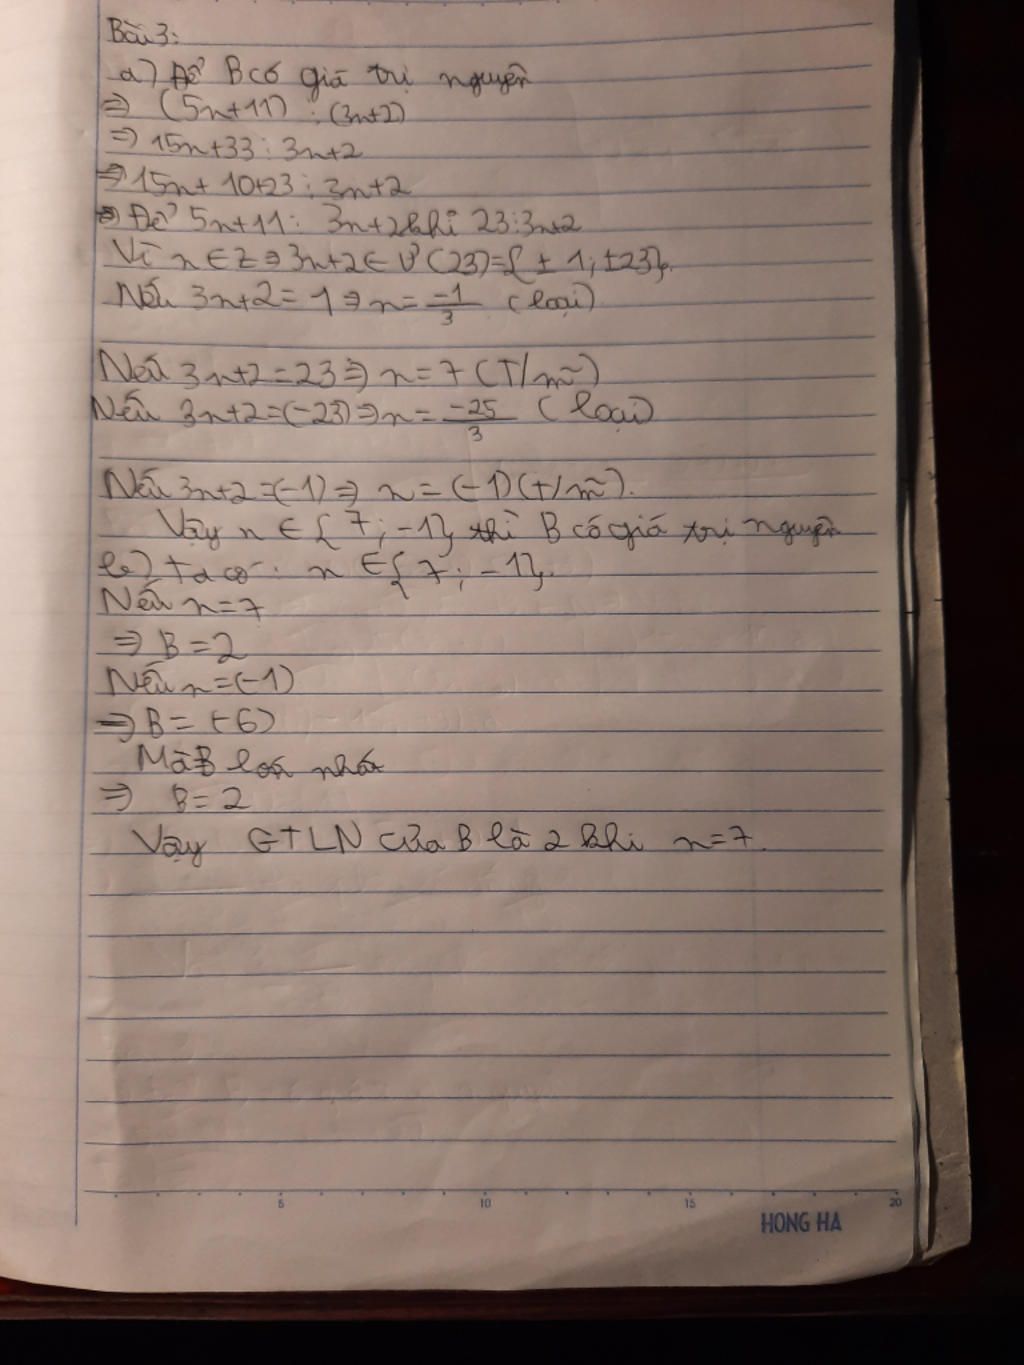 Bài 3:
a) Để B có giá trị nguyên
⇒ (5n+11) ⋮ (3n+2)
⇒ 15n+33 ⋮ 3n+2
⇒ 15n+10+23 ⋮ 3n+2
⇒ Để 5n+11 ⋮ 3n+2 khi 23 ⋮ 3n+2
Vì n ∈ Z ⇒ 3n+2 ∈ Ư(23)={±1; ±23}.
Nếu 3n+2=1 ⇒ n = -1/3 (loại)
Nếu 3n+2=23 ⇒ n=7 (T/m)
Nếu 3n+2=(-23) ⇒ n = -25/3 (loại)
Nếu 3n+2=(-1) ⇒ n=(-1) (t/m).
Vậy n ∈ {7; -1} thì B có giá trị nguyên
b) Ta có: n ∈ {7; -1}.
Nếu n=7
⇒ B=2
Nếu n=(-1)
⇒ B=(-6)
Mà B lớn nhất
⇒ B=2
Vậy GTLN của B là 2 khi n=7.
5 10 15 20
HONG HA